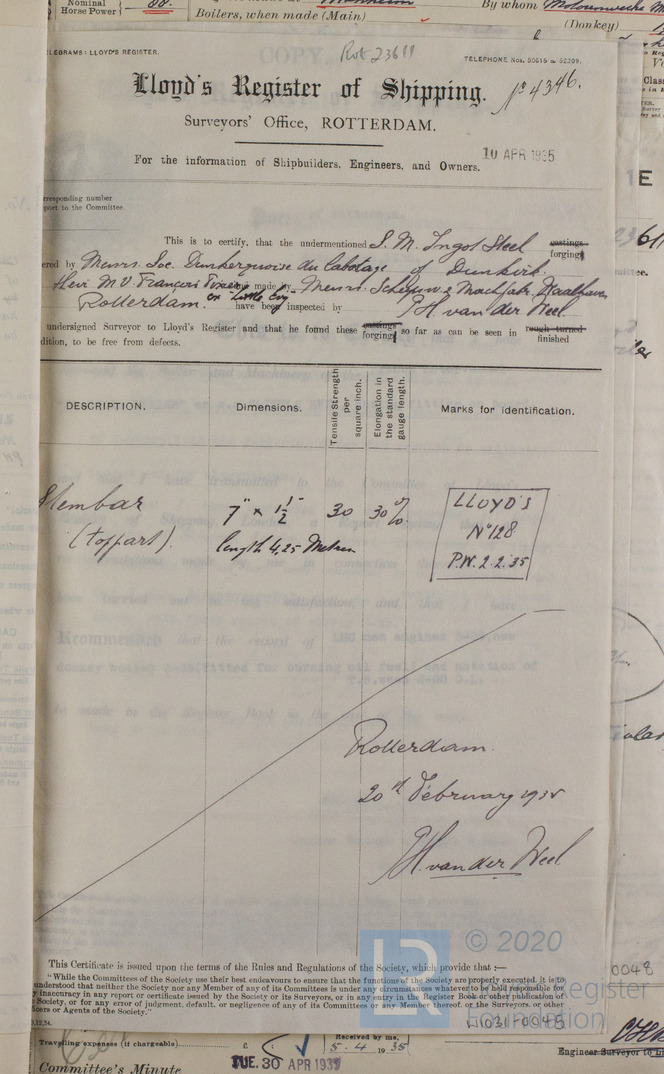 Nominal
Horse Power
88.
Boilers, when made (Main)
By whom
(Donkey)
COPY
Rot 23611
LEGRAMS: LLOYD'S REGISTER.
TELEPHONE Nos. 50615 & 52209.
Lloyd's Register of Shipping.
No 4346.
Surveyors' Office, ROTTERDAM.
For the information of Shipbuilders, Engineers, and Owners.
10 APR 1935
rresponding number
port to the Committee.
This is to certify, that the undermentioned S. M. Ingot Steel castings forgings
ered by Messrs. Soc. Dunkerquoise du Cabotage of Dunkirk.
their M.V. François made by Messrs.
Rotterdam. have been inspected by P.H. van der Weel
undersigned Surveyor to Lloyd's Register and that he found these castings forgings so far as can be seen in rough turned finished
dition, to be free from defects.
DESCRIPTION.
Dimensions.
Tensile Strength per square inch.
Elongation in the standard gauge length.
Marks for identification.
Stembar
(toppart).
7" × 1 1/2"
length 4,25 Metres
30
30%
LLOYD'S
No 128
P.W. 2.2.35
Rotterdam.
20th February 1935
P.H. van der Weel
This Certificate is issued upon the terms of the Rules and Regulations of the Society, which provide that :—
"While the Committees of the Society use their best endeavours to ensure that the functions of the Society are properly executed, it is to
understood that neither the Society nor any Member of any of its Committees is under any circumstances whatever to be held responsible for
y inaccuracy in any report or certificate issued by the Society or its Surveyors, or in any entry in the Register Book or other publication of
Society, or for any error of judgment, default, or negligence of any of its Committees or any Member thereof, or the Surveyors, or other
icers or Agents of the Society."
© 2020
Register
Foundation
0048
W1031-0048
Travelling expenses (if chargeable)
£ :
Received by me,
5.4 1935
Engineer Surveyor to
Committee's Minute
TUE. 30 APR 1935